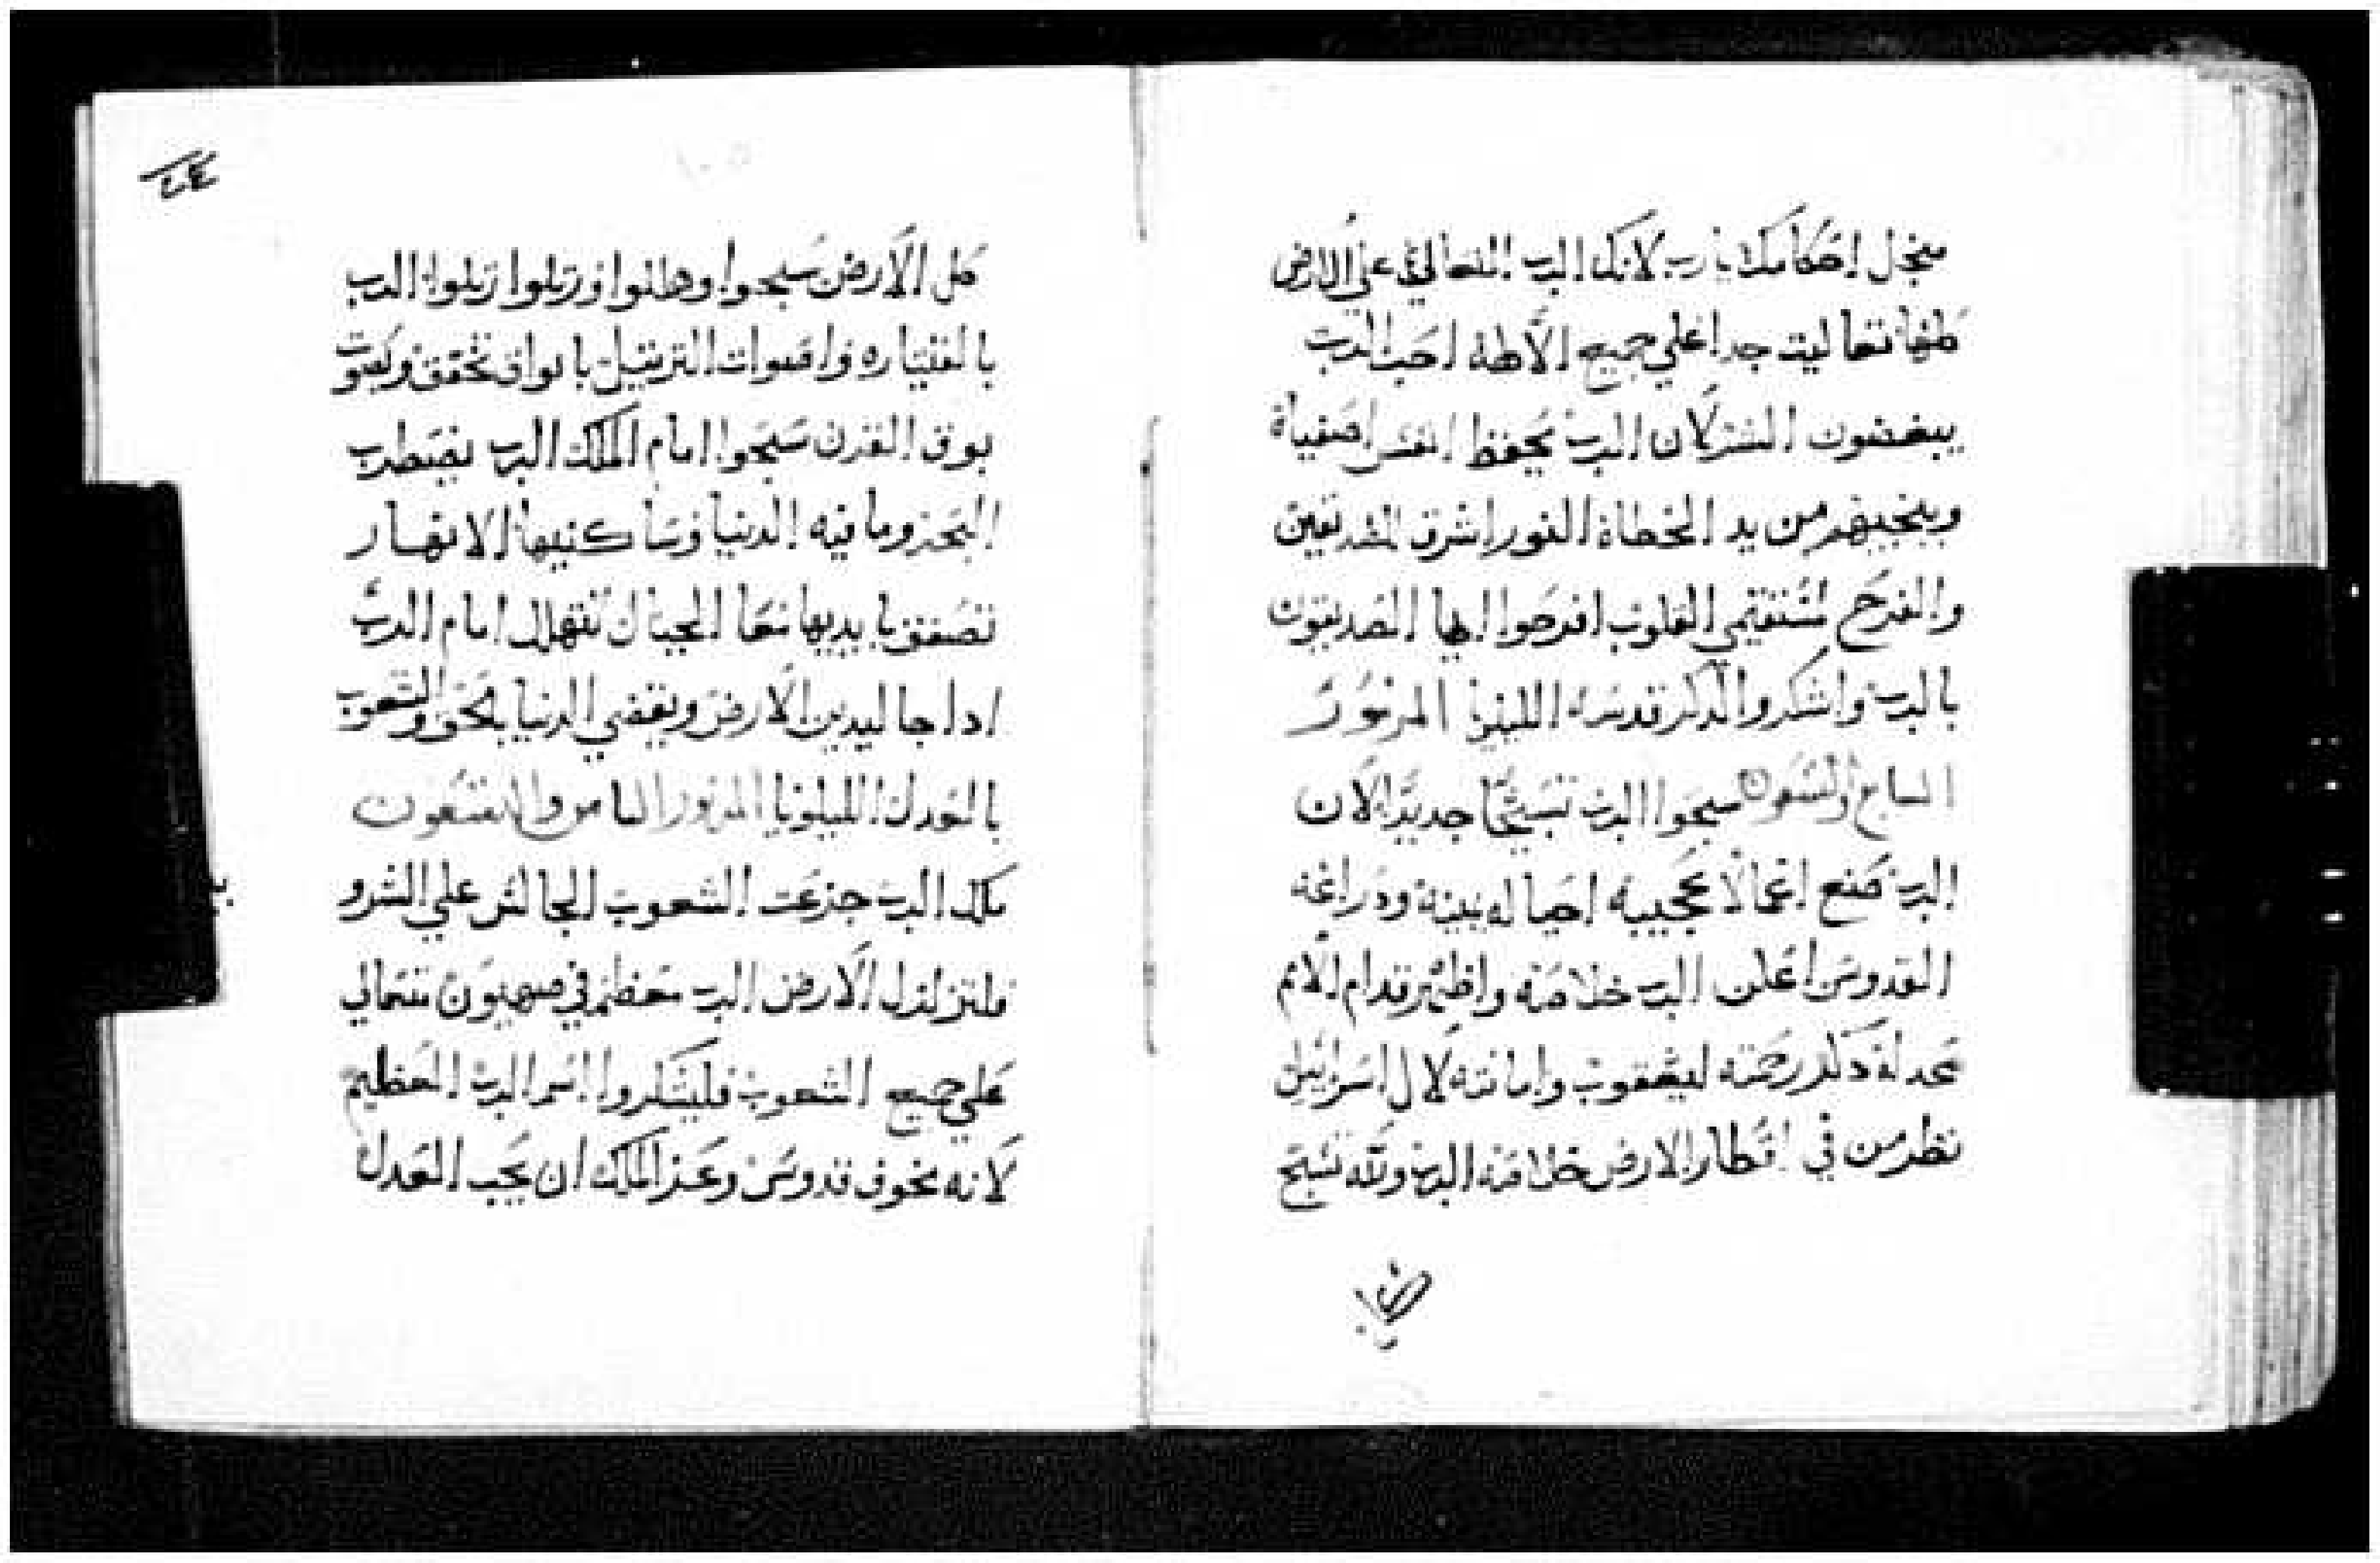 من اجل احكامك يارب لانك الرب المتعالي على الارض
كلها تعاليت جدا علي جميع الالهة احب الرب
يبغضون الشر لان الرب يحفظ انفس اصفياه
وينجيهم من يد الخطاة النور اشرق للصديقين
والفرح لمستقيمي القلوب افرحوا ايها الصديقون
بالرب واشكروا لذكر قدسه الليلويا المزمور
السابع والتسعون سبحوا الرب تسبيحًا جديدًا لان
الرب صنع اعمالا عجيبة احيا له يمينه ودراعه
القدوس اعلن الرب خلاصه واظهر قدام الامم
عدله ذكر رحمته ليعقوب وامانته لال اسراييل
نظر من في اقطار الارض خلاص الرب
كل الارض سبحوا وهللوا ورتلوا رتلوا الرب
بالقيتاره واصوات الترتيل بابواق تخفق وبصوت
بوق القرن سبحوا امام الملك الرب يضطرب
البحر وما فيه الدنيا وساكنيها الانهار
تصفق بايديها معا الجبال تتهلل امام الرب
ادا جا ليدين الارض ويقضي الدنيا بالحق والشعوب
بالعدل الليلويا المزمور الثامن والتسعون
ملك الرب جزعت الشعوب الجالس علي الشرو
فلتزلزل الارض الرب عظيم في صهيون متعالي
علي جميع الشعوب فليشكروا اسم الرب العظيم
لانه مخوف قدوس وعز الملك ان يحب العدل